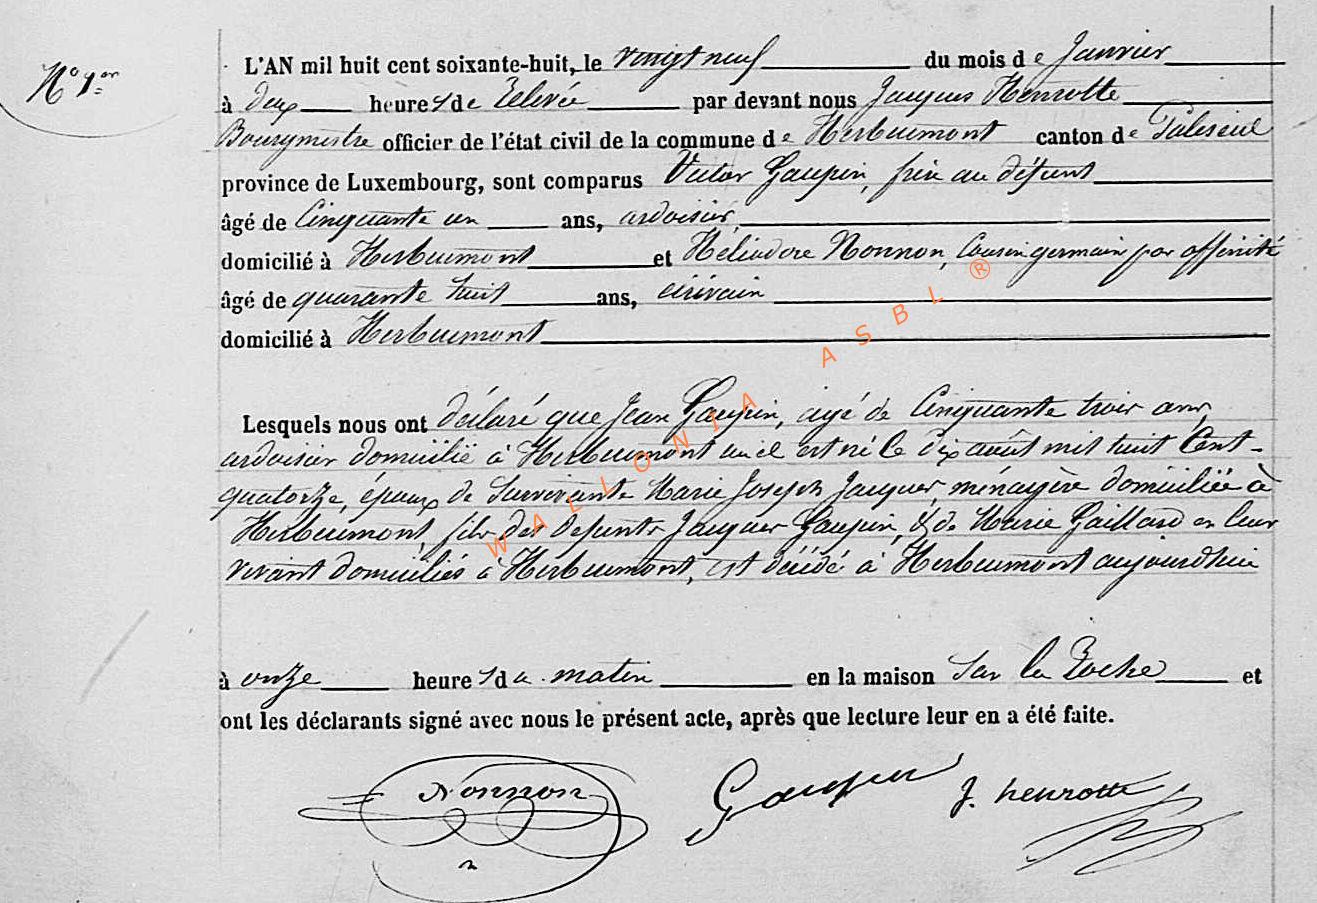 N° 1er
L'AN mil huit cent soixante-huit, le vingt neuf du mois de Janvier
à deux heures de Relevée par devant nous Jacques Henrotte
Bourgmestre officier de l'état civil de la commune de Herbeumont canton de Paliseul
province de Luxembourg, sont comparus Victor Gaupin, frère au défunt
âgé de Cinquante un ans, ardoisier,
domicilié à Herbeumont et Héliodore Nonnon, Cousin germain par affinité
âgé de quarante huit ans, écrivain
domicilié à Herbeumont
Lesquels nous ont déclaré que Jean Gaupin, agé de Cinquante trois ans,
ardoisier domicilié à Herbeumont où il est né le dix août mil huit Cent-
quatorze, époux de Survivante Marie Joseph Jacques, ménagère domiciliée à
Herbeumont, fils des defunts Jacques Gaupin, & de Marie Gaillard en leur
vivant domiciliés à Herbeumont, est décédé à Herbeumont aujourd'hui
à onze heures du matin en la maison Sur la Roche et
ont les déclarants signé avec nous le présent acte, après que lecture leur en a été faite.
Nonnon Gaupin J. henrotte
WALLONIA ASBL ®